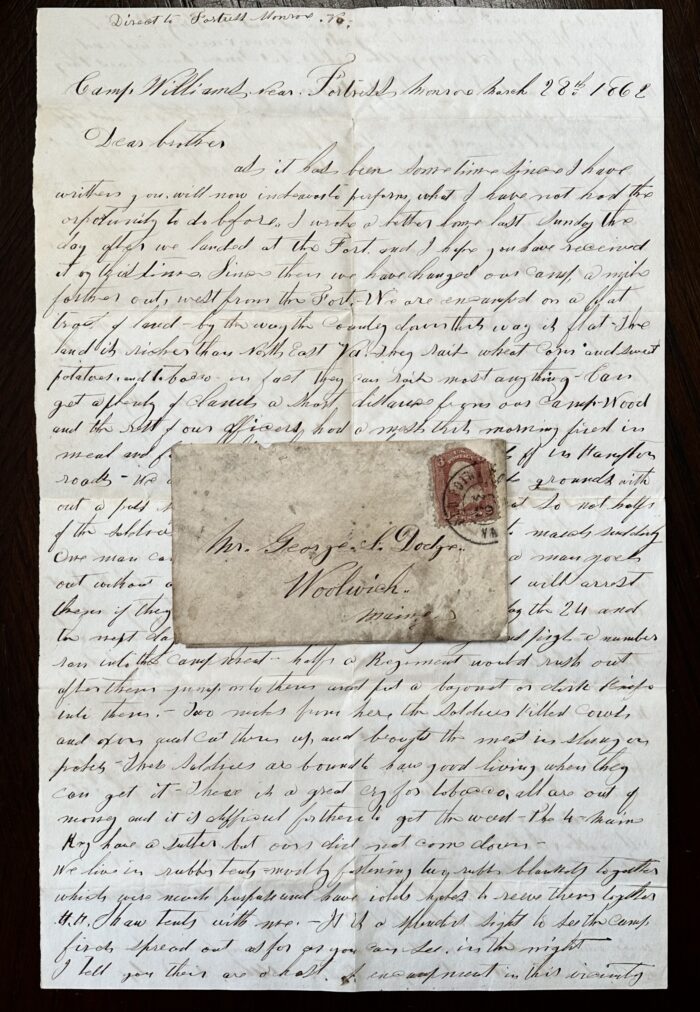 Direct to Fortress Monroe. Va.
Camp Williams, near Fortress Monroe March 28th 1862
Dear brother
as it has been sometime since I have
written you, will now indeavor to perform, what I have not had the
opportunity to do before. I wrote a letter home last Sunday the
day after we landed at the Fort. and I hope you have received
it by this time. Since then we have changed our camp a mile
further out, west from the Fort - We are encamped on a flat
tract of land - by the way the country down this way is flat - The
land is richer than North East Va. They rais wheat corn and sweet
potatoes, and tobacco - in fact they can rais most anything - Can
get a plenty of clams a short distance from our camp - Wood
and the rest of our officers had a mess this morning fried in
meal and
of in Hampton
roads - We
grounds with
out a pass
not half
of the soldiers
suddenly
One man
a man goes
out without a
will arrest
them if they
the 24 and
the next day
a number
ran into the camp - half a Regiment would rush out
after them jump onto them and put a bayonet or dirk knife
into them. - Two miles from here the Soldiers killed cows
and oxen just cut them up and brought the meat in slung on
poles - These Soldiers are bound to have good living when they
can get it - There is a great cry for tobacco, all are out of
money and it is difficult for them to get the weed - The 4 - Maine
Reg have a sutler but ours did not come down -
We live in rubber tents - made by fastening two rubber blankets together
which were made purpose and have holes to reeve them together
H.H. Shaw tents with me. - It is a splendid sight to see the camp
fires spread out as far as you can see in the night
I tell you their are a host of encampment in this vicinity
Mr. George S. Dodge.
Woolwich.
Maine
OLD POINT COMFORT
VA